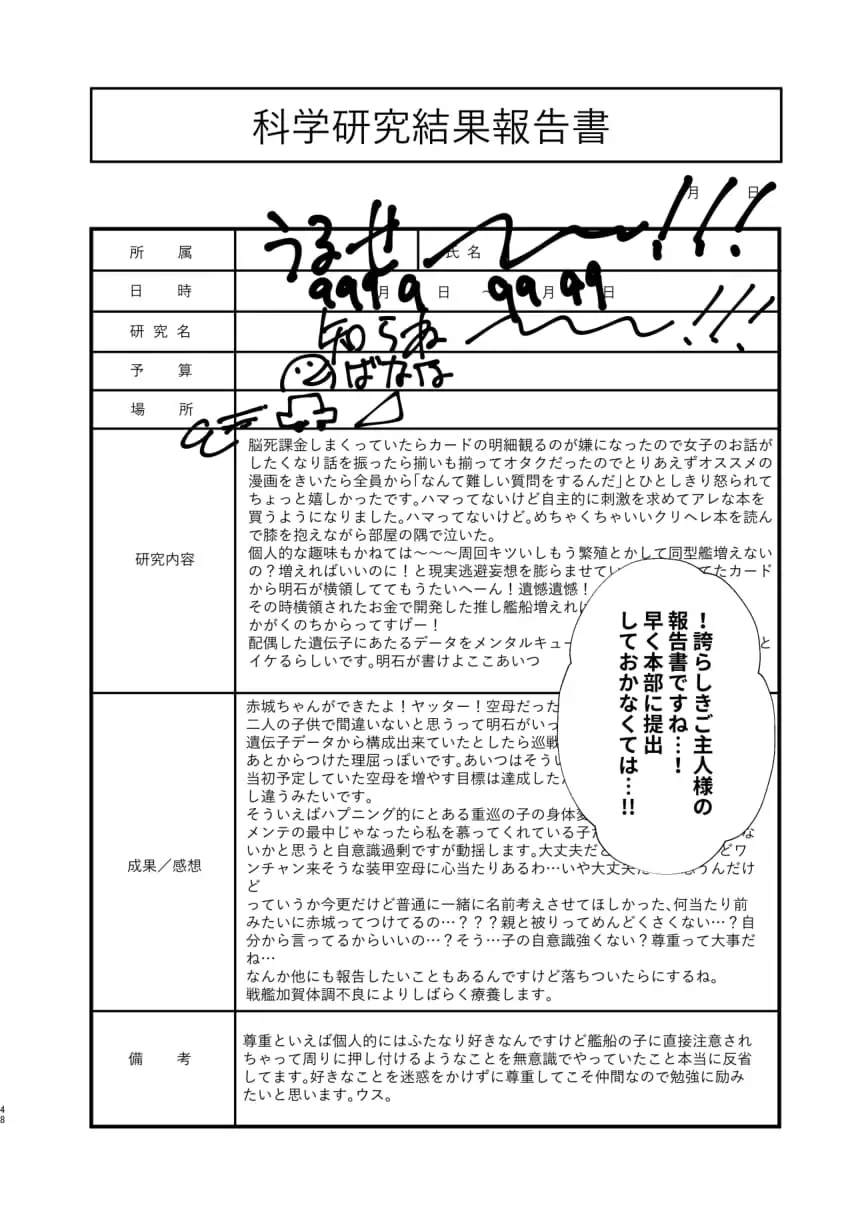 科学研究結果報告書
月 日
所 属 うるせ 氏 名 〜〜!!!
日 時 9999 月 日 〜 9999 月 日
研 究 名 知らね〜〜!!!
予 算 ばなな
場 所
研究内容
脳死課金しまくっていたらカードの明細観るのが嫌になったので女子のお話が
したくなり話を振ったら揃いも揃ってオタクだったのでとりあえずオススメの
漫画をきいたら全員から「なんて難しい質問をするんだ」とひとしきり怒られて
ちょっと嬉しかったです。ハマってないけど自主的に刺激を求めてアレな本を
買うようになりました。ハマってないけど。めちゃくちゃいいクリヘレ本を読ん
で膝を抱えながら部屋の隅で泣いた。
個人的な趣味もかねては〜〜〜周回キツいしもう繁殖とかして同型艦増えない
の?増えればいいのに!と現実逃避妄想を膨らませてい てたカード
から明石が横領しててもうたいへーん!遺憾遺憾!
その時横領されたお金で開発した推し艦船増えれば
かがくのちからってすげー!
配偶した遺伝子にあたるデータをメンタルキュー と
イケるらしいです。明石が書けよここあいつ
成果/感想
赤城ちゃんができたよ!ヤッター!空母だった
二人の子供で間違いないと思うって明石がいっ
遺伝子データから構成出来ていたとしたら巡戦
あとからつけた理屈っぽいです。あいつはそうい
当初予定していた空母を増やす目標は達成した
し違うみたいです。
そういえばハプニング的にとある重巡の子の身体
メンテの最中じゃなったら私を慕ってくれている子 な
いかと思うと自意識過剰ですが動揺します。大丈夫だ どワ
ンチャン来そうな装甲空母に心当たりあるわ…いや大丈夫 思うんだけ
ど
っていうか今更だけど普通に一緒に名前考えさせてほしかった、何当たり前
みたいに赤城ってつけてるの…???親と被りってめんどくさくない…?自
分から言ってるからいいの…?そう…子の自意識強くない?尊重って大事だ
ね…
なんか他にも報告したいこともあるんですけど落ちついたらにするね。
戦艦加賀体調不良によりしばらく療養します。
備 考
尊重といえば個人的にはふたなり好きなんですけど艦船の子に直接注意され
ちゃって周りに押し付けるようなことを無意識でやっていたこと本当に反省
してます。好きなことを迷惑をかけずに尊重してこそ仲間なので勉強に励み
たいと思います。ウス。
!誇らしきご主人様の
報告書ですね…!
早く本部に提出
しておかなくては…!!
48